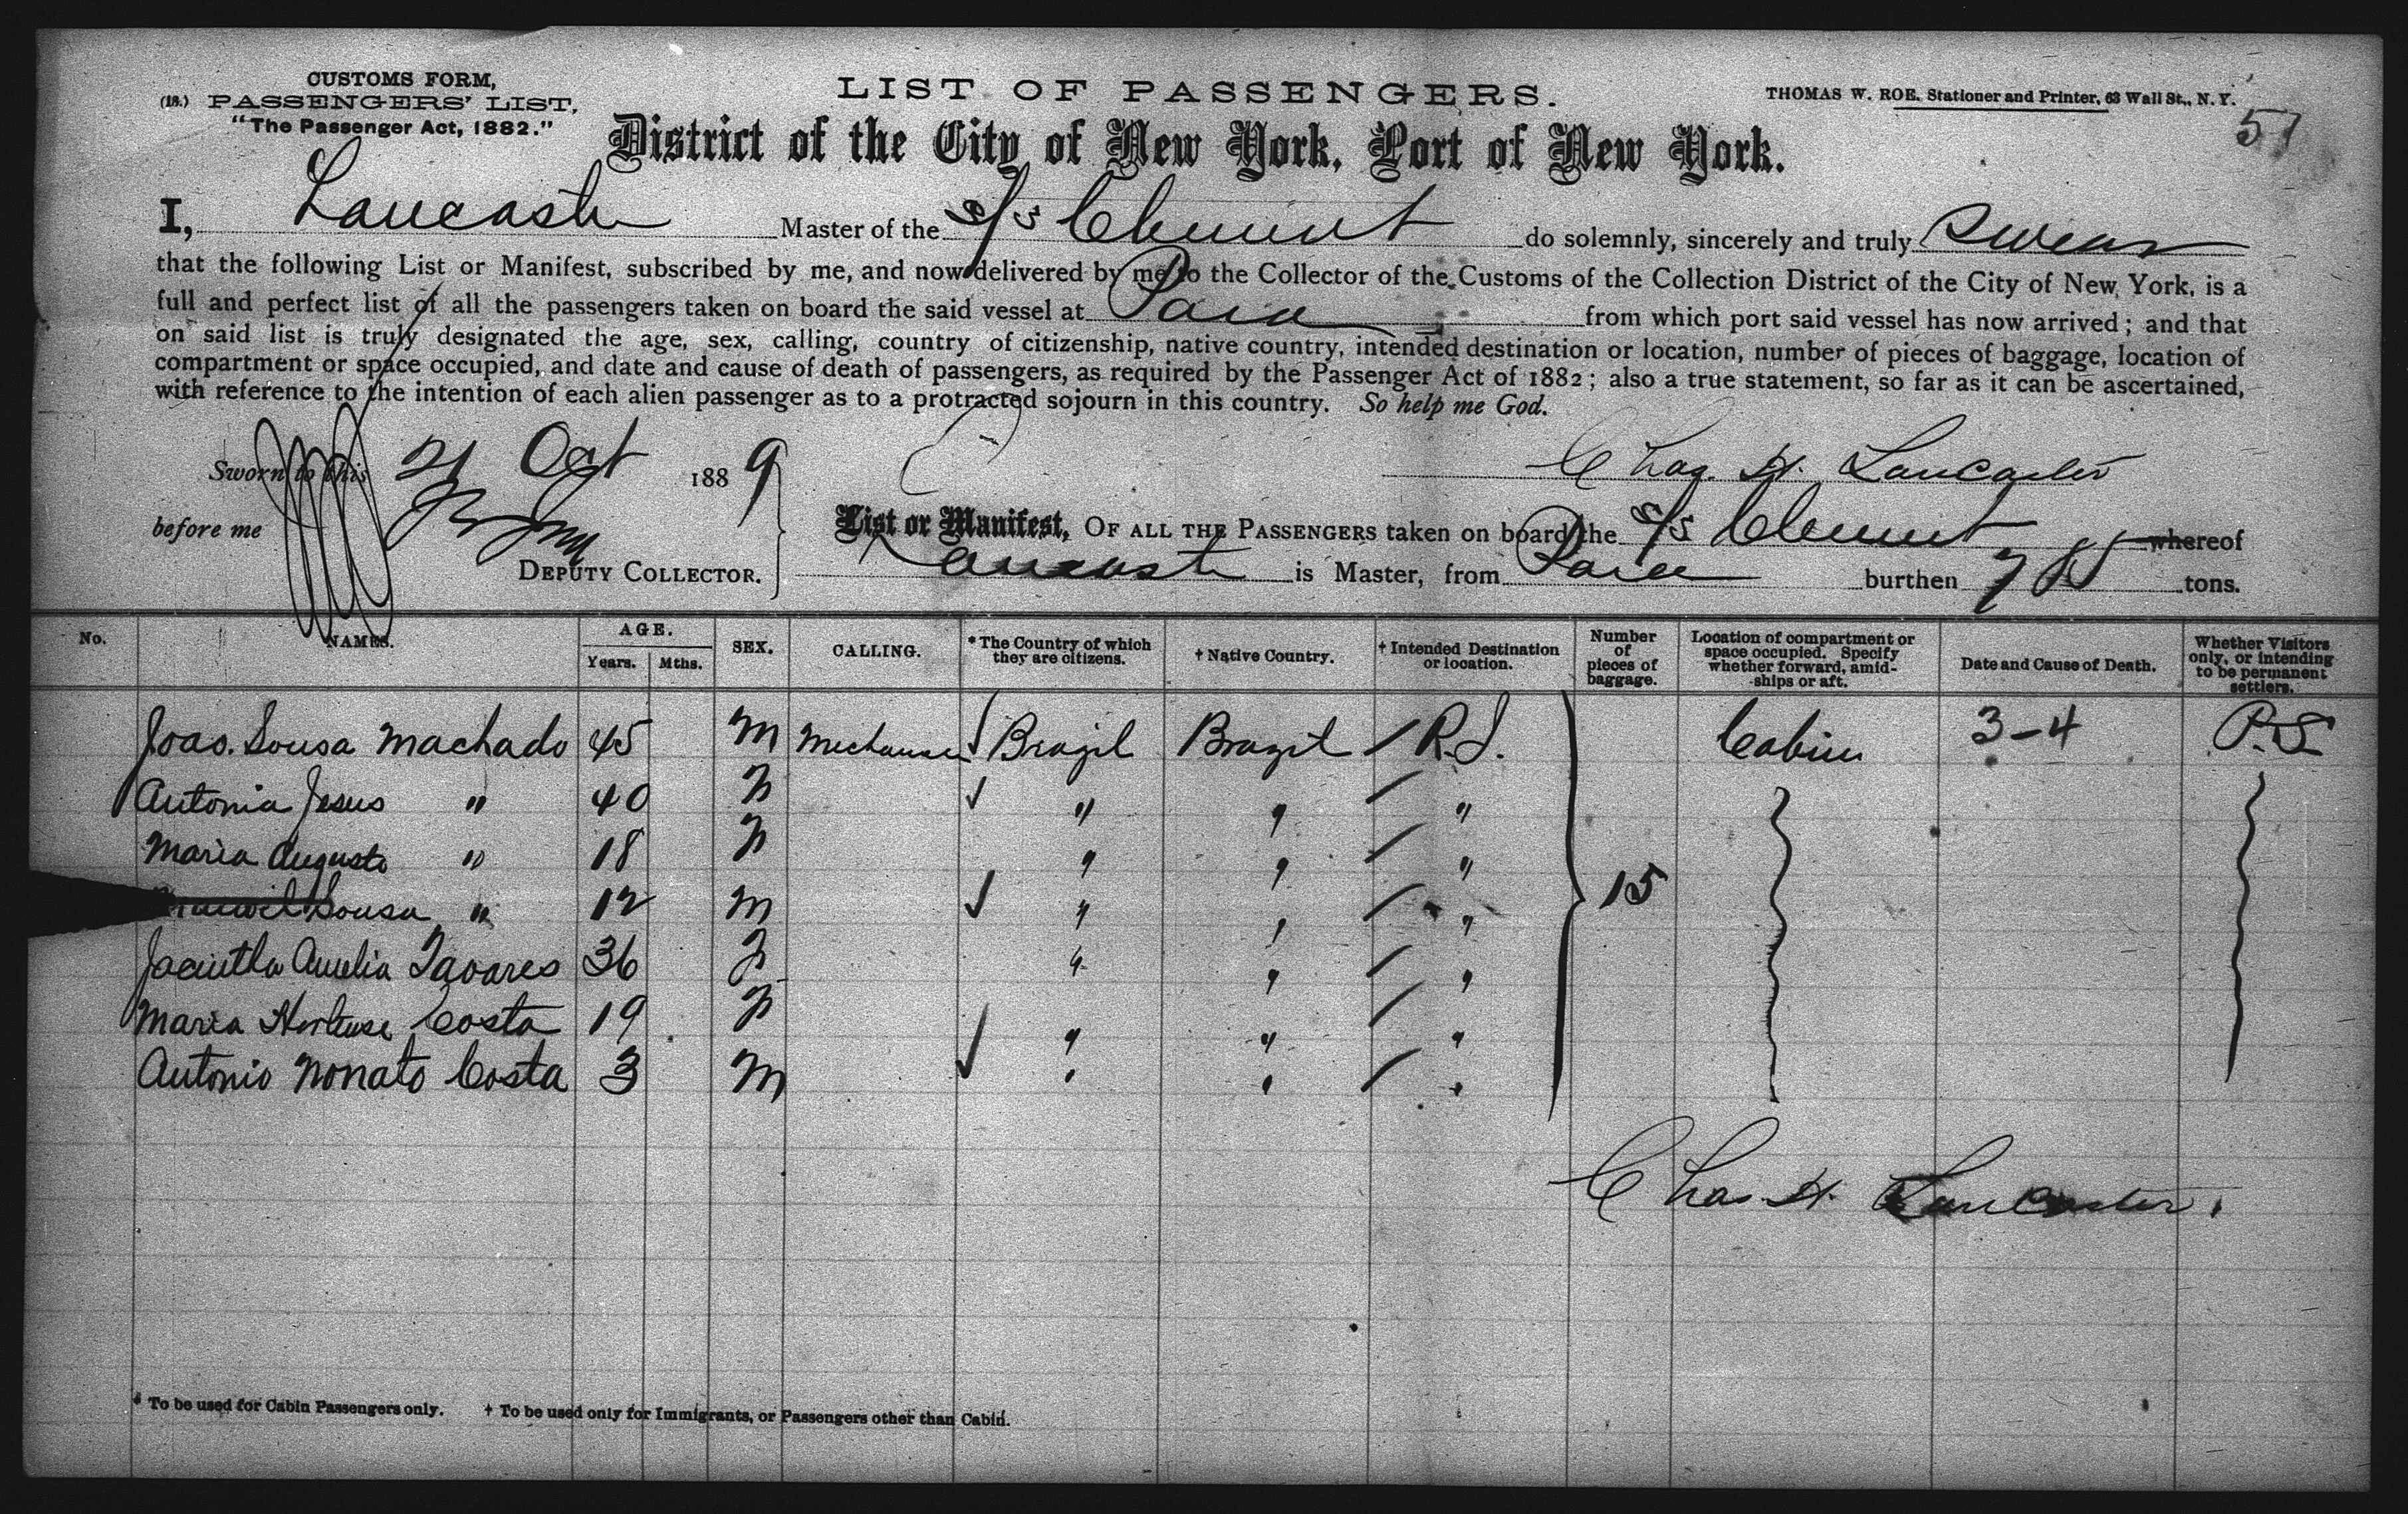 CUSTOMS FORM,
(18.) PASSENGERS' LIST,
"The Passenger Act, 1882."
LIST OF PASSENGERS.
THOMAS W. ROE, Stationer and Printer, 63 Wall St., N. Y.
57
District of the City of New York, Port of New York.
I, Lancaster Master of the S/S Clement do solemnly, sincerely and truly Swear
that the following List or Manifest, subscribed by me, and now delivered by me to the Collector of the Customs of the Collection District of the City of New York, is a
full and perfect list of all the passengers taken on board the said vessel at Para from which port said vessel has now arrived; and that
on said list is truly designated the age, sex, calling, country of citizenship, native country, intended destination or location, number of pieces of baggage, location of
compartment or space occupied, and date and cause of death of passengers, as required by the Passenger Act of 1882; also a true statement, so far as it can be ascertained,
with reference to the intention of each alien passenger as to a protracted sojourn in this country. So help me God.
Sworn to this 21 Oct 1889
Chas. H. Lancaster
before me
DEPUTY COLLECTOR.
List or Manifest, OF ALL THE PASSENGERS taken on board the S/S Clement whereof
Lancaster is Master, from Para burthen tons.
No. NAMES. AGE. Years. Mths. SEX. CALLING. * The Country of which they are citizens. † Native Country. † Intended Destination or location. Number of pieces of baggage. Location of compartment or space occupied. Specify whether forward, amid-ships or aft. Date and Cause of Death. Whether Visitors only, or intending to be permanent settlers.
Joao. Sousa Machado 45 M Mechanic Brazil Brazil R.S. Cabin 3-4 P.S
Antonia Jesus " 40 F " " "
Maria Augusta " 18 F " " "
Manoel Sousa " 12 M " " " 15
Jacintha Amelia Tavares 36 F " " "
Maria Hortense Costa 19 F " " "
Antonio Nonato Costa 3 M " " "
Chas. H. Lancaster.
* To be used for Cabin Passengers only. † To be used only for Immigrants, or Passengers other than Cabin.